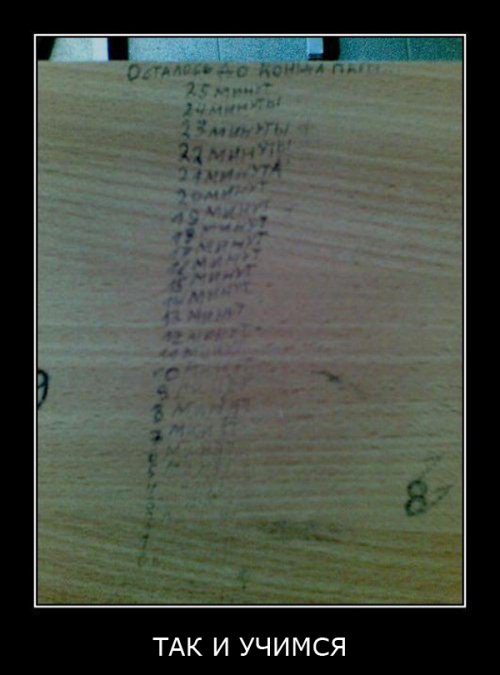 ОСТАЛОСЬ ДО КОНЦА ПАРЫ
25 МИНУТ
24 МИНУТЫ
23 МИНУТЫ
22 МИНУТЫ
21 МИНУТА
20 МИНУТ
19 МИНУТ
18 МИНУТ
17 МИНУТ
16 МИНУТ
15 МИНУТ
14 МИНУТ
13 МИНУТ
12 МИНУТ
11 МИНУТ
10 МИНУТ
9
8 МИНУТ
7 МИНУТ
6 МИНУТ
5 МИНУТ
8
ТАК И УЧИМСЯ